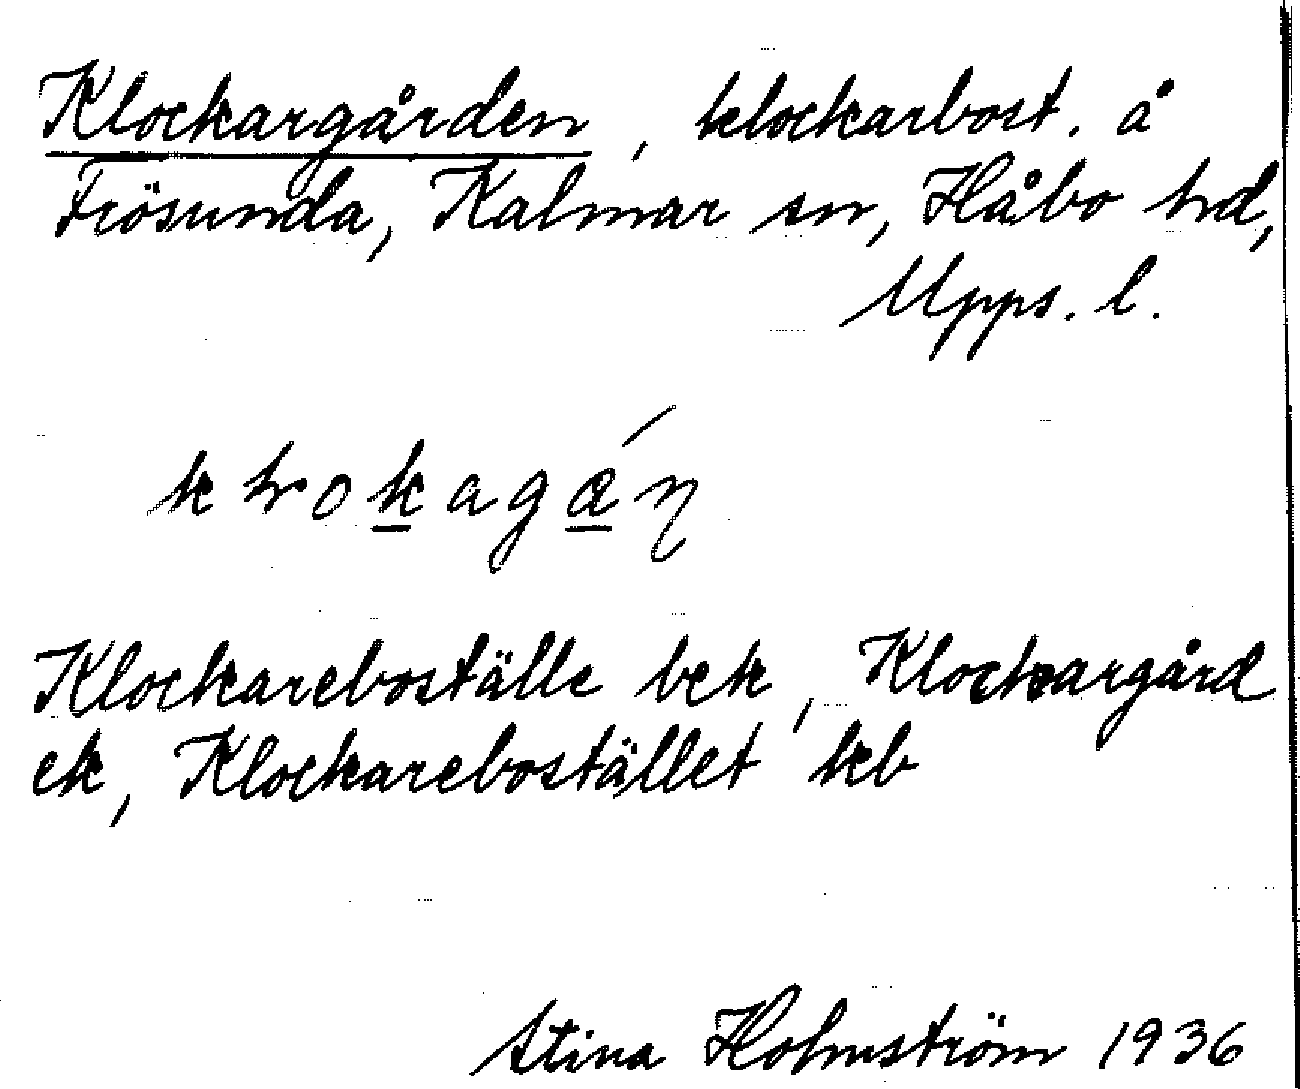 Klockargården, klockarbost. å
Frösunda, Kalmar sn, Håbo hd,
Upps. l.
Klockareboställe bek, Klockargård
ek, Klockarebostället kb
Stina Holmström 1936